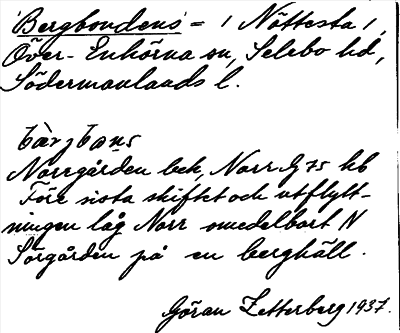 'Bergbondens' = / Nöttesta /,
Över-Enhörna sn, Selebo hd,
Södermanlands l.
Norrgården bek, Norr-G 75 hb
Före sista skiftet och utflytt-
ningen låg Norr omedelbart N
Sörgården på en berghäll.
Göran Zetterberg 1937.